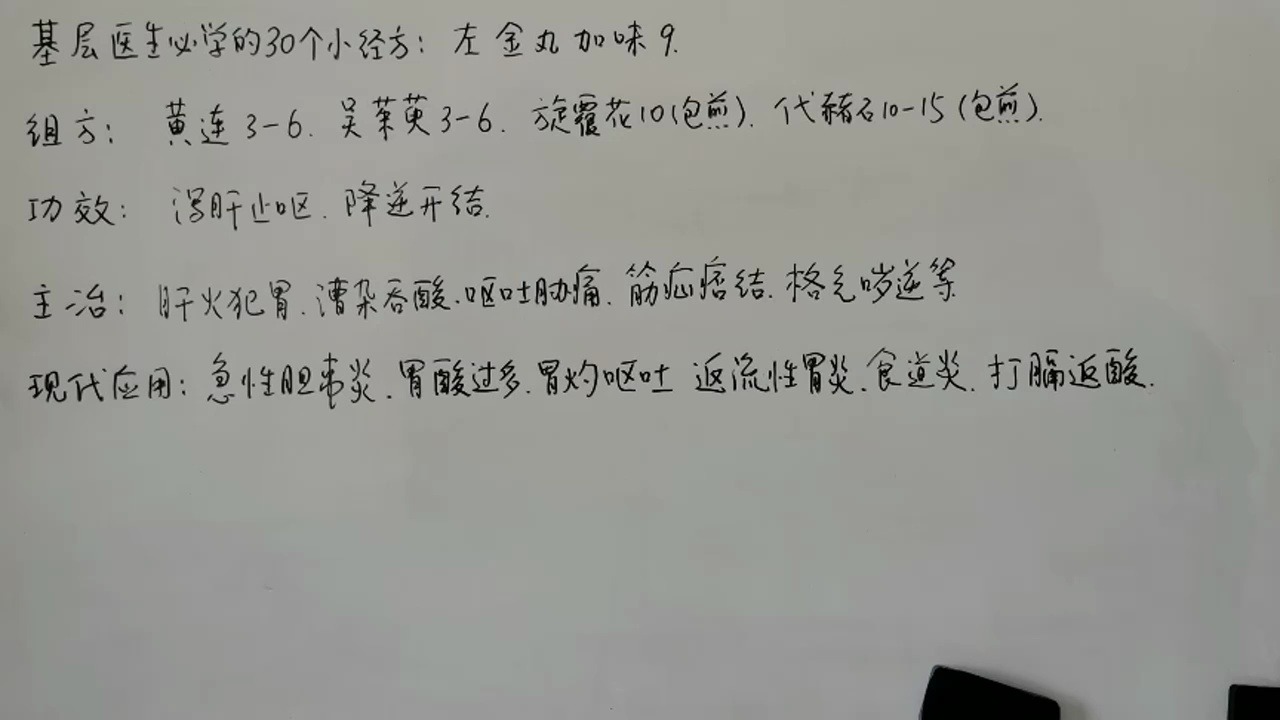 基层医生必学的30个小经方：左金丸加味9.
组方：黄连3-6.吴茱萸3-6.旋覆花10(包煎).代赭石10-15(包煎).
功效：泻肝止呕.降逆开结.
主治：肝火犯胃.漕杂吞酸.呕吐胁痛.筋疝痞结.格乞哕逆等
现代应用：急性胆囊炎.胃酸过多.胃灼呕吐 返流性胃炎.食道炎.打膈返酸.